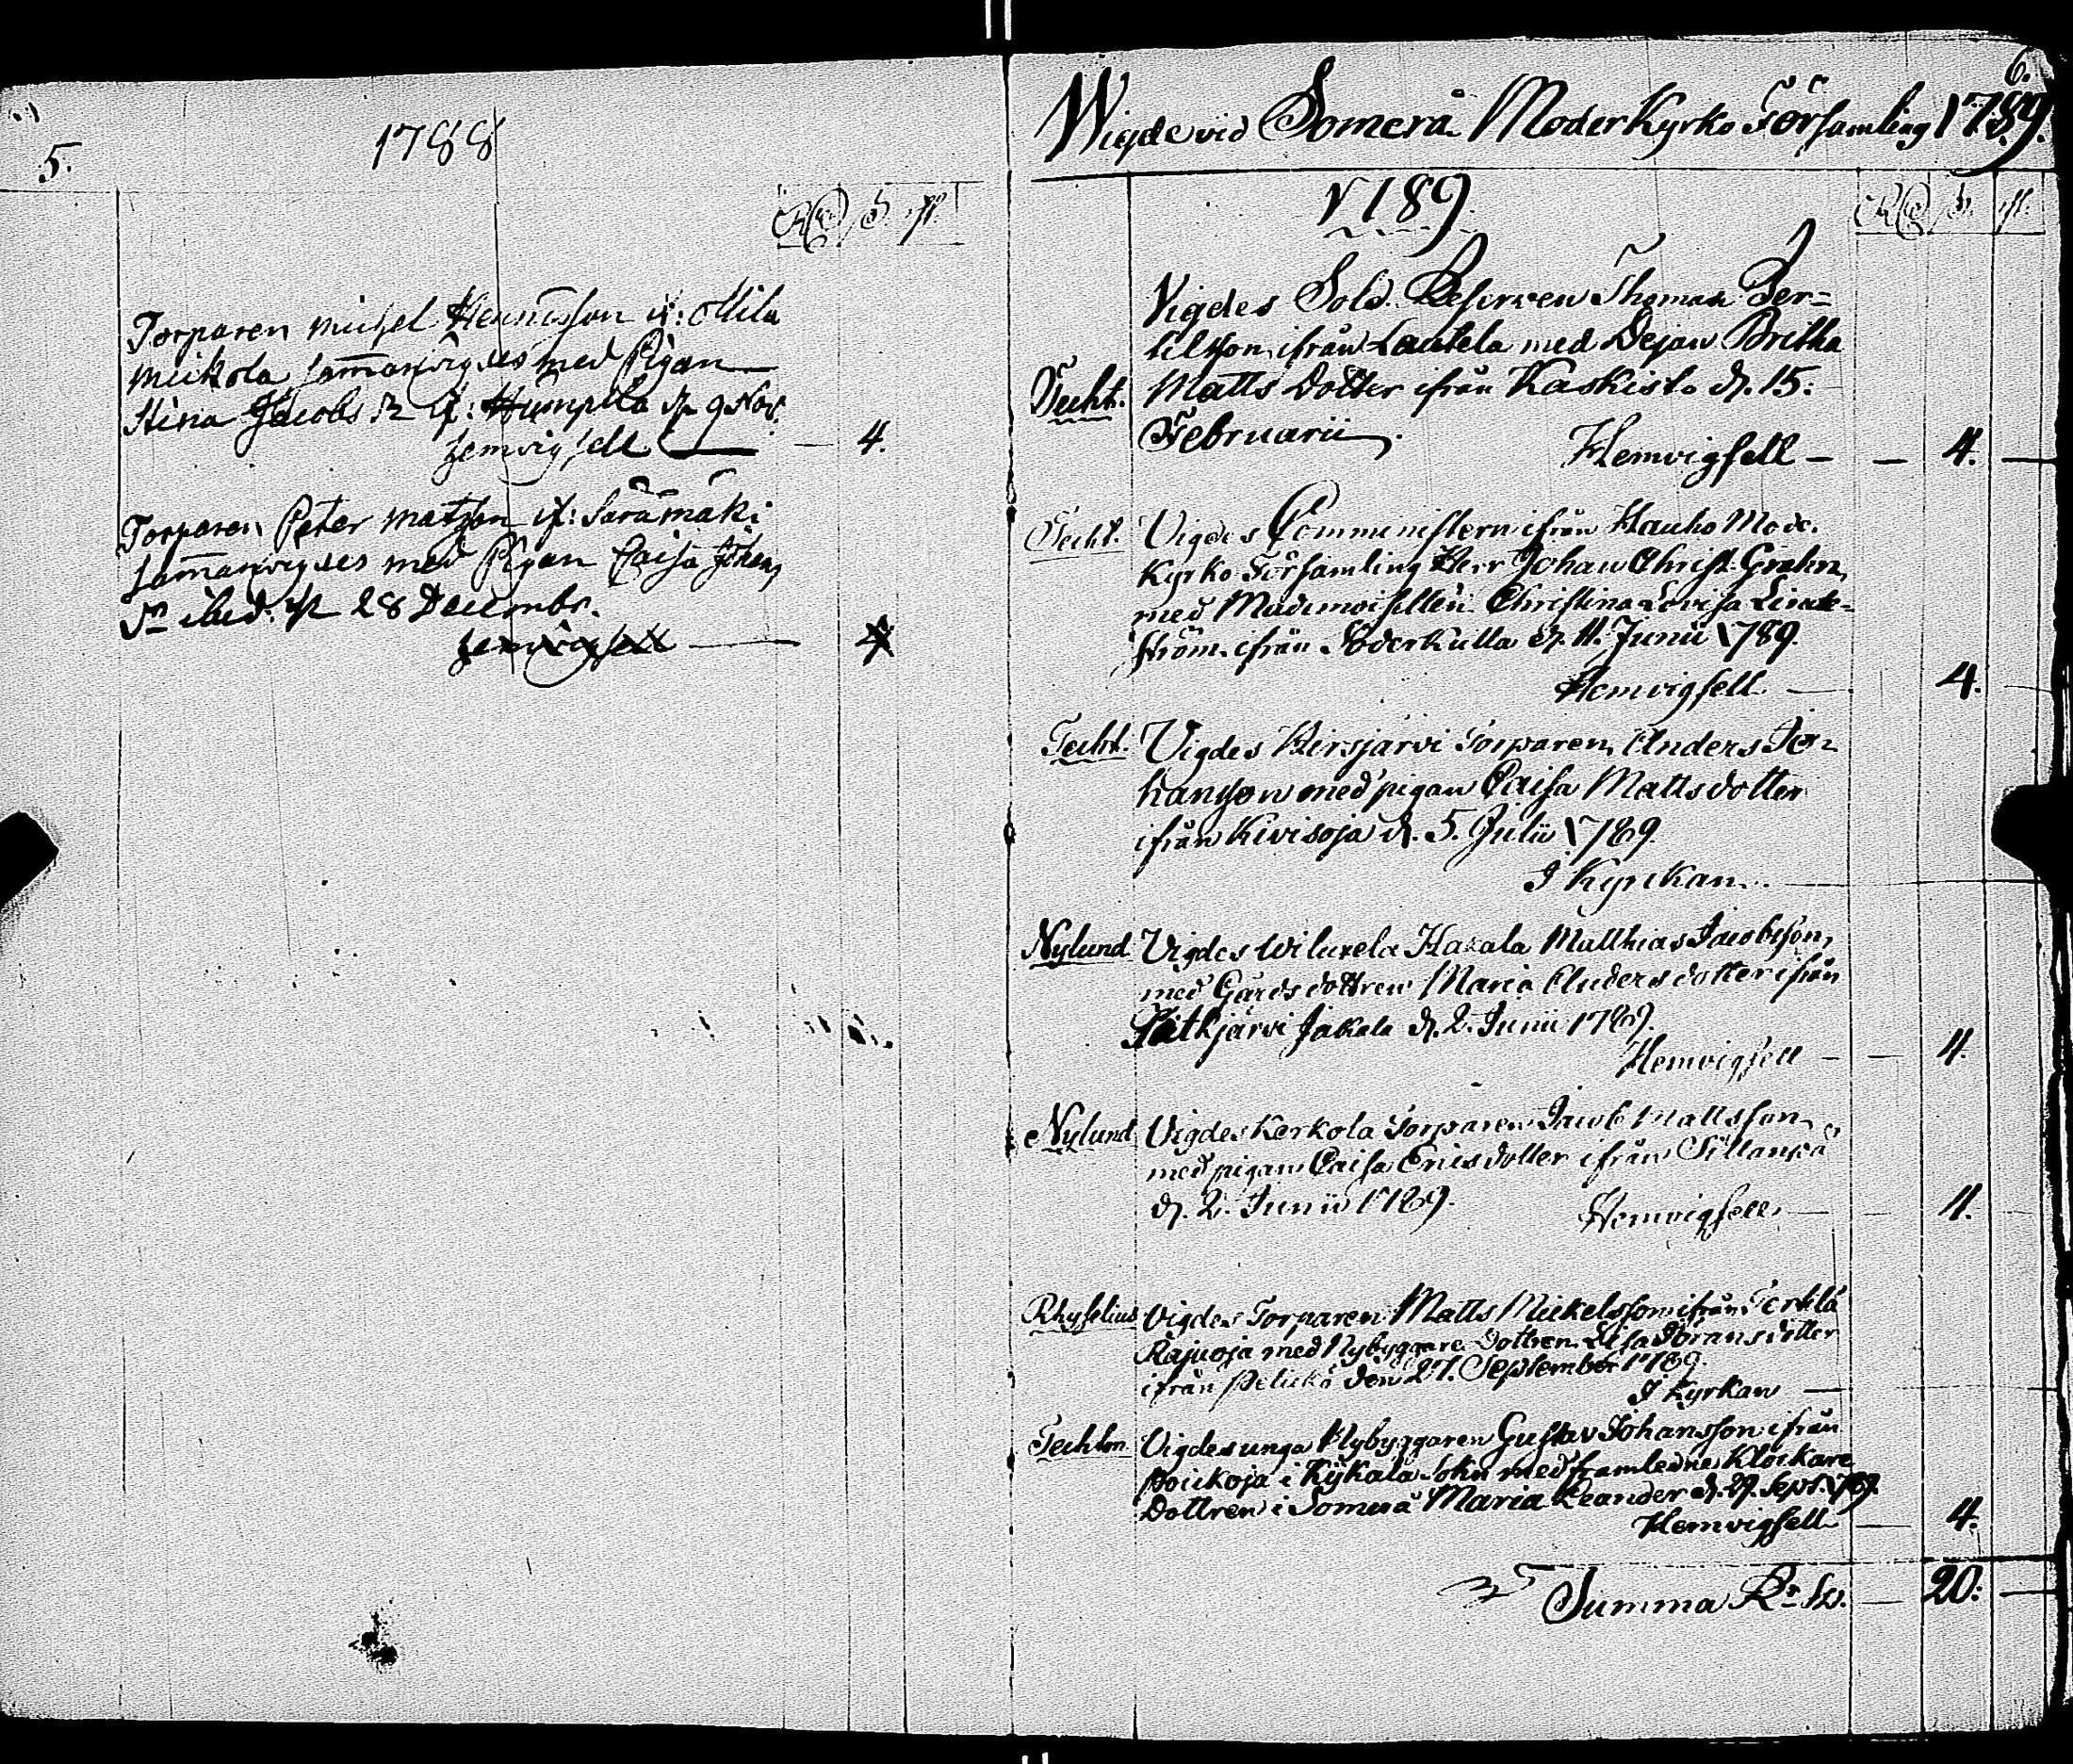 5.
1788
Rd s. rst.
Torparen michel Henricsson if: Ollila
Mickola sammanvigdes med Pigan
Stina Jacobs Dr if: Humpila d. 9 Nov.
hemvigsell — 4.
Torparen Peter Matsson if: Saramäki
sammanvigdes med Pigan Caisa Johans
Dr ibid. d. 28 Decembr.
hemvigsell — 4
6.
Wigde vid Somerå Moder Kyrko Församling 1789.
1789
Rd s. rst.
Vigdes Sold. Reserven Thomas Ber=
tilsson, ifrån Lautela med Dejan Britha
Techt. Matts Dotter ifrån Kaskisto d. 15:
Februarii.
Hemvigsell — — 4. —
Techt. Vigdes Comministern ifrån Hauho Mode.
Kyrko Församling Herr Johan Christ. Grahn,
med Mademoisellen Christina Lovisa Linde=
ström ifrån Söderkulla d. 11. Junii 1789.
Hemvigsell. — 4.
Techt. Vigdes Hirsjärvi Torparen Anders Jo=
hansson med pigan Caisa Mattsdotter
ifrån Kivisoja d. 5. Julii 1789.
I Kyrckan.
Nylund Vigdes Viluxela Hazala Matthias Jacobsson,
med Gårdsdottren Maria Andersdotter ifrån
Pitkjärvi Jakala d. 2. Junii 1789.
Hemvigsell — — 4.
Nylund Vigdes Kerkola Torparen Jacob Mattsson,
med pigan Caisa Ericsdotter ifrån Sillanpä
d. 2. Junii 1789. Hemvigsell — 4.
Rhyselius Vigdes Torparen Matts Mickelsson ifrån Terttilä
Rajuoja med Nybyggare Dottren Lisa Göransdotter
ifrån den 27. September 1789.
I Kyrkan —
Techton Vigdes unga Nybyggaren Gustav Johansson ifrån
Poickoja i Kijkala Sokn med framledne Klockare
Dottren i Somerå Maria Leander d. 29. Sept. 1789.
Hemvigsell — 4.
Summa Rr Sp. — 20: —